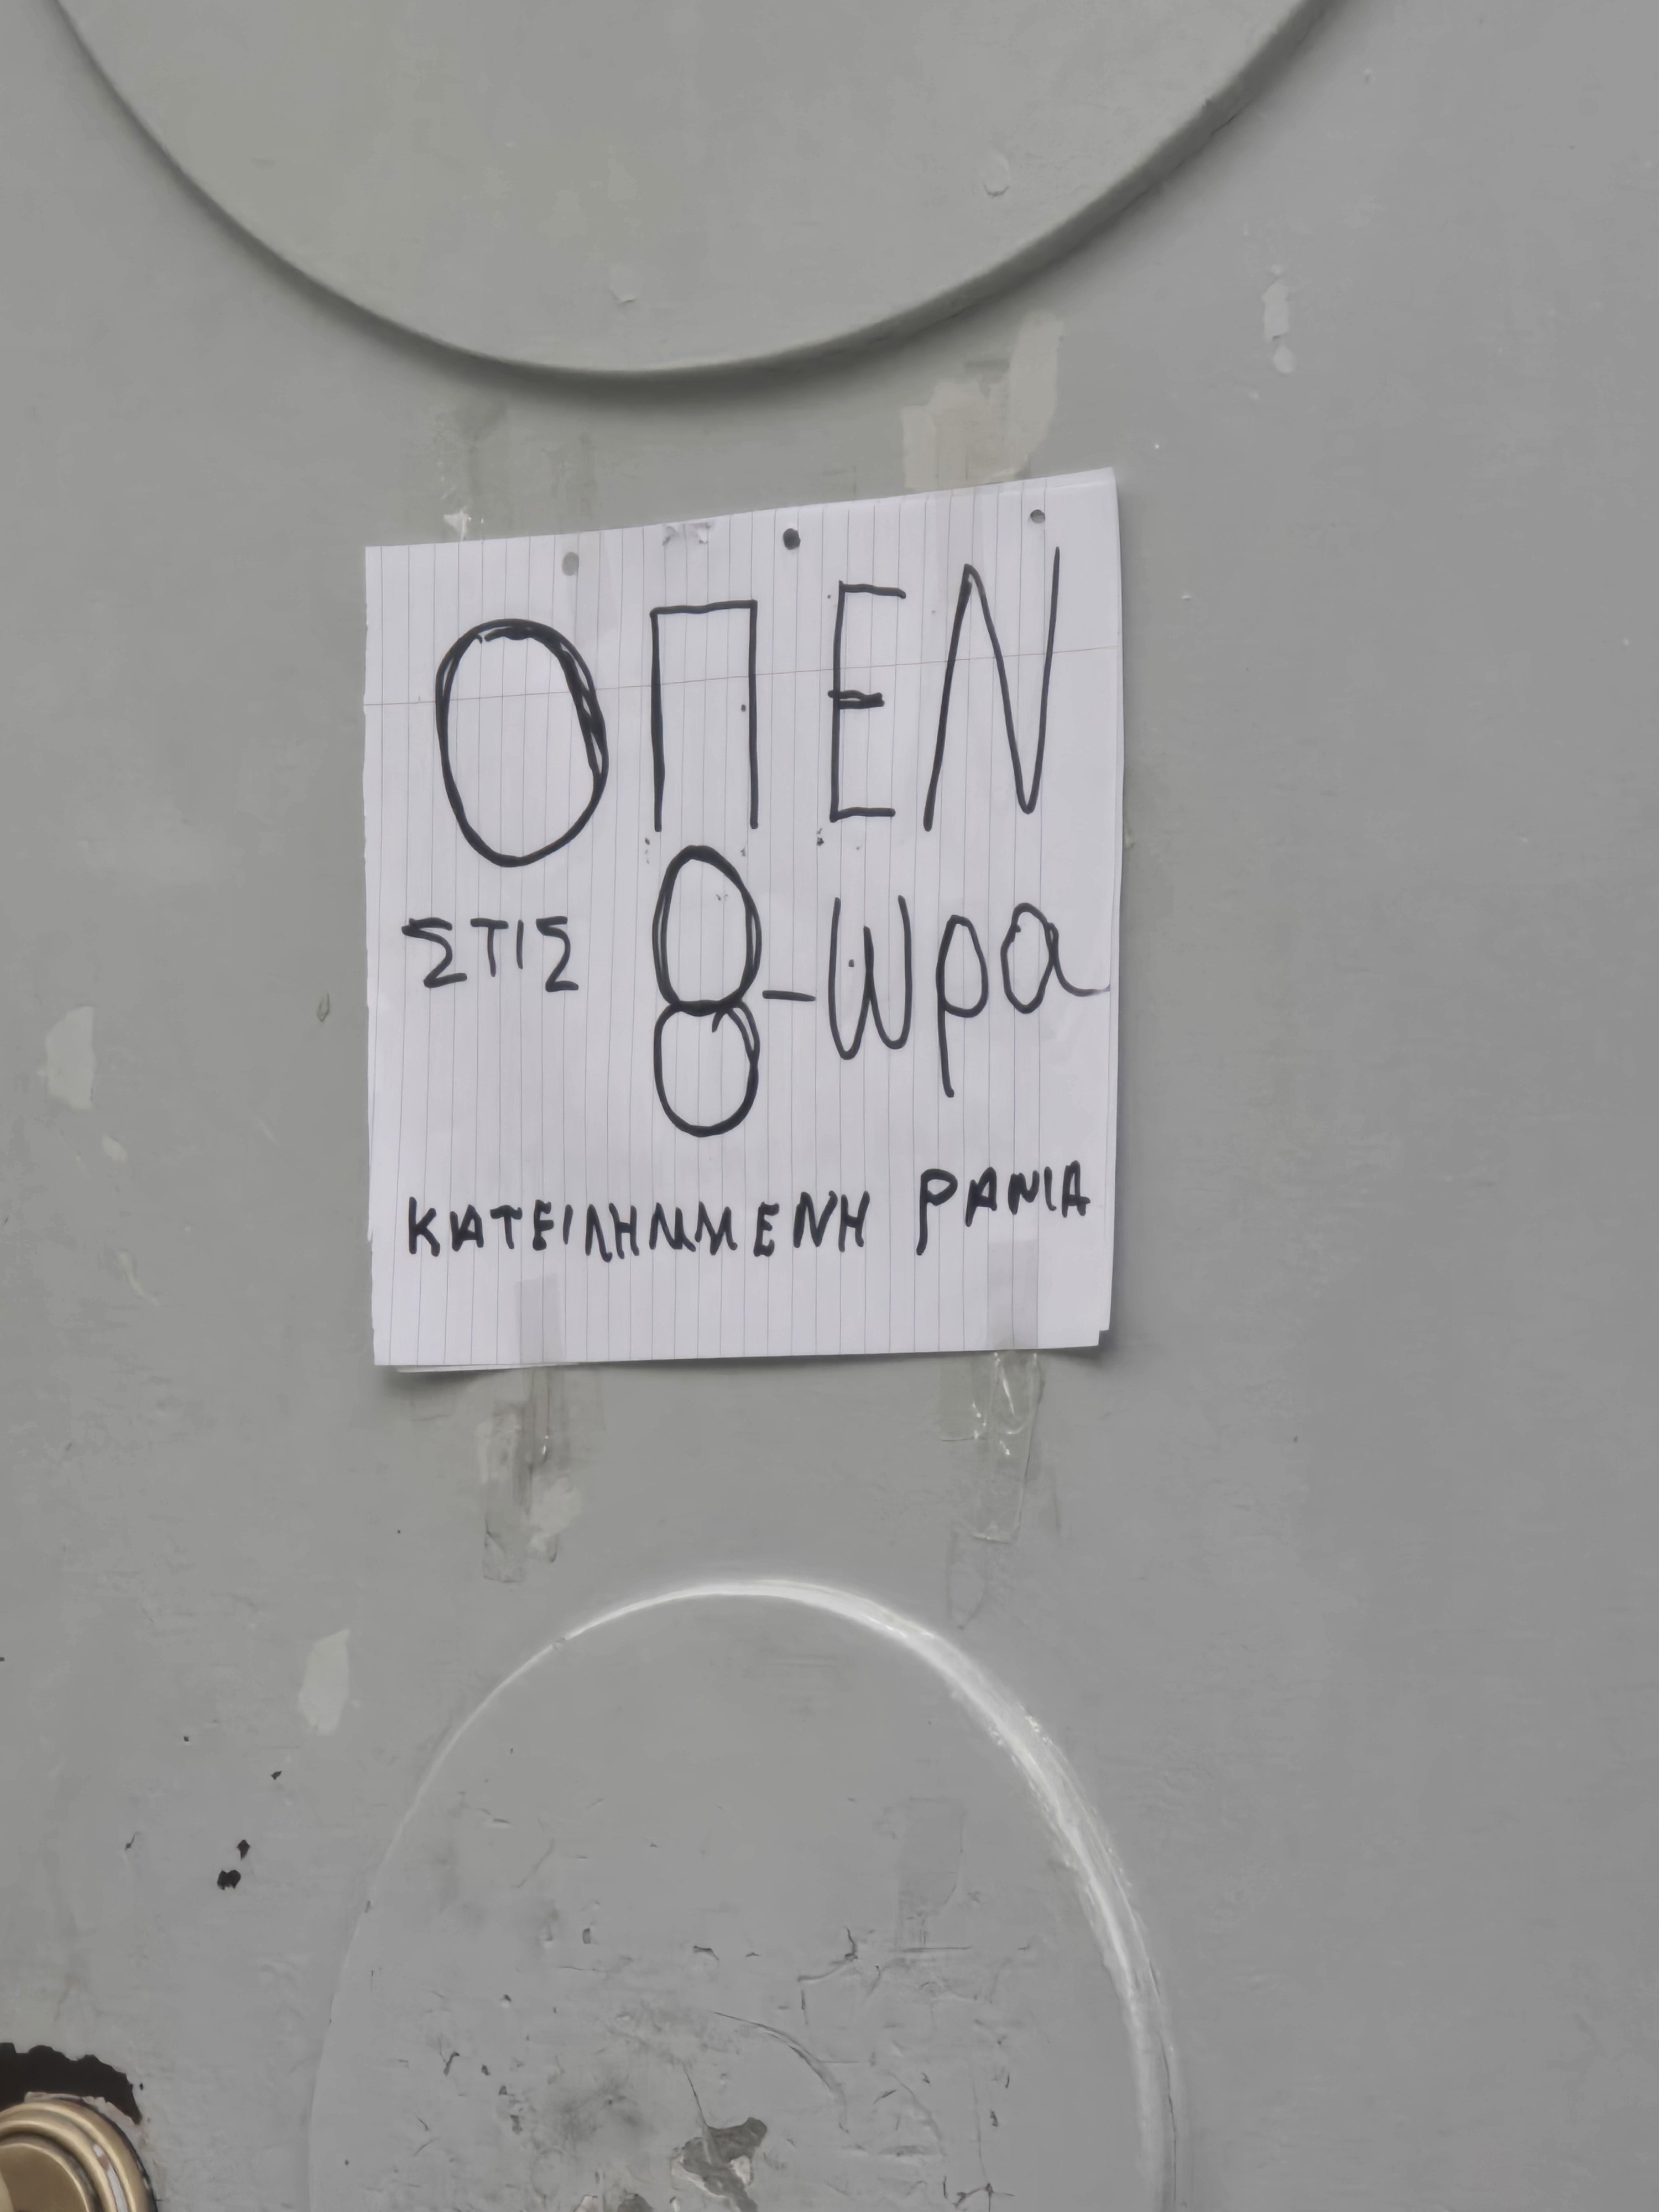 ΟΠΕΝ
ΣΤΙΣ 8-ωρα
ΚΑΤΕΙΛΗΜΜΕΝΗ ΡΑΝΙΑ